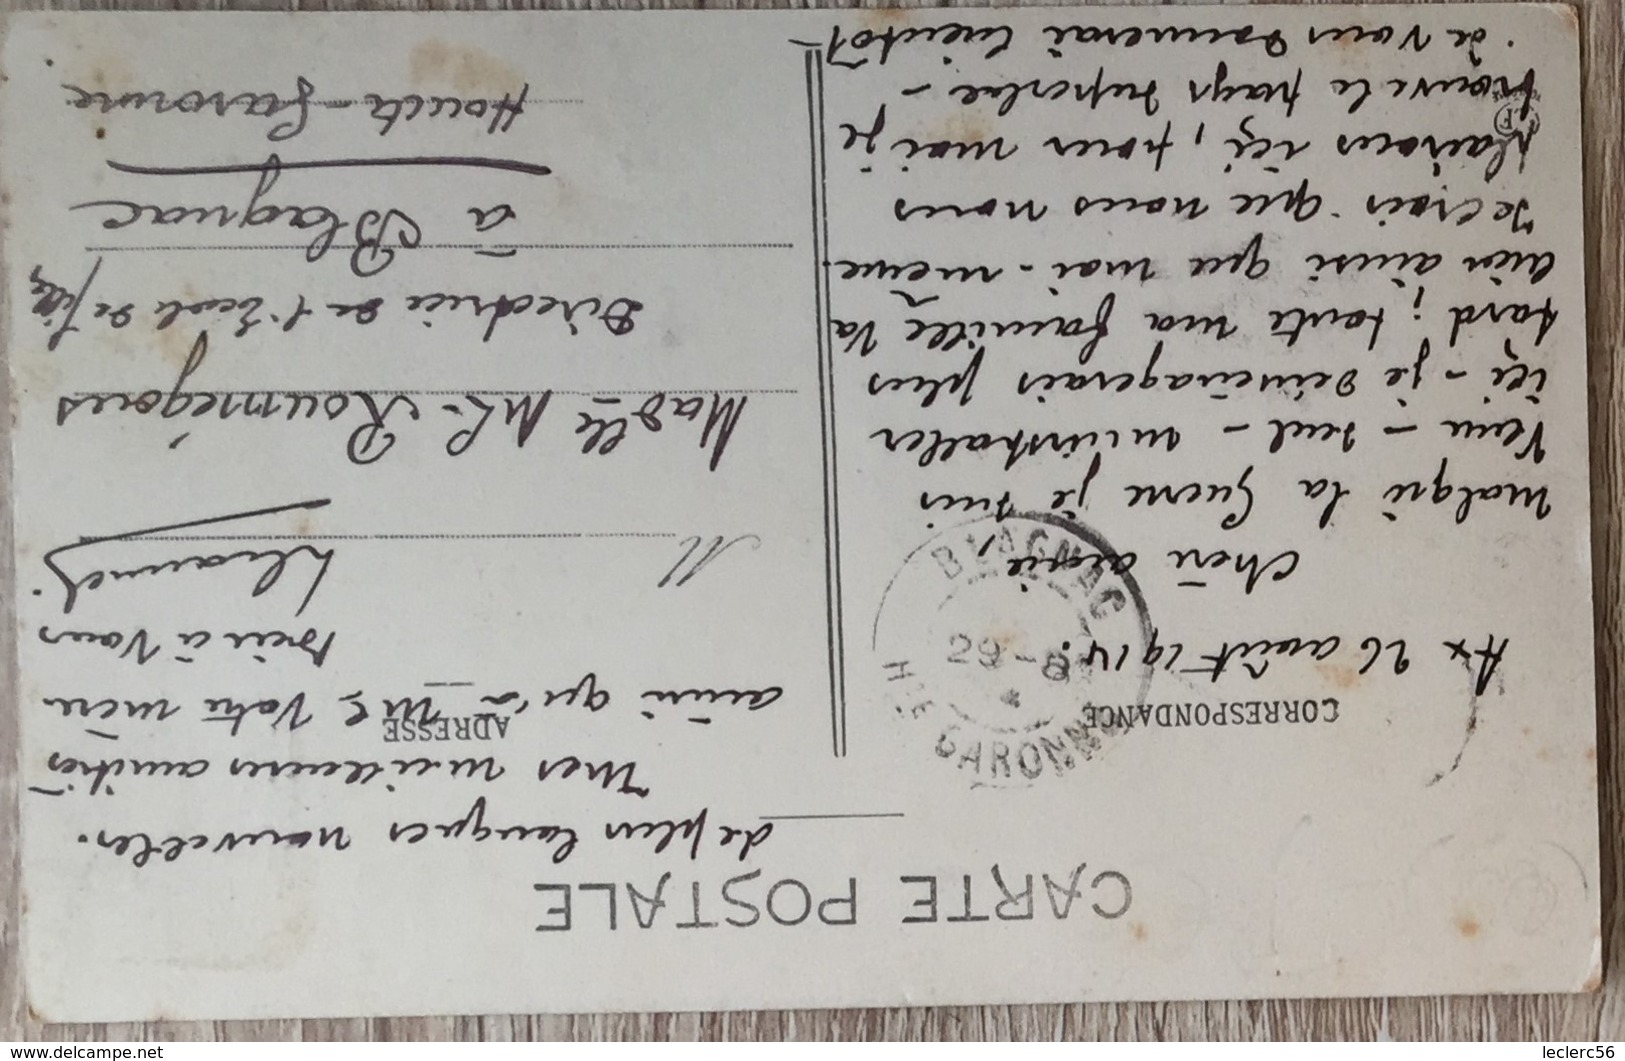 CARTE POSTALE
CORRESPONDANCE
Ax 26 août 1914.
Chère amie,
Malgré la Guerre je suis
Venu - seul - m'installer
ici - je déménagerais plus
tard ; toute ma famille va
bien ainsi que moi-même.
Je crois que nous nous
plairons ici, pour moi je
trouve le pays superbe -
Je vous donnerai bientôt
de plus longues nouvelles.
Mes meilleures amitiés
ainsi qu'à Me Votre mère
bien à Vous
ADRESSE
M
Madelle ML. Roumégous
Directrice de l'Ecole de filles
à Blagnac
Haute-Garonne
BLAGNAC
29-8
HTE GARONNE
leclerc56
www.delcampe.net